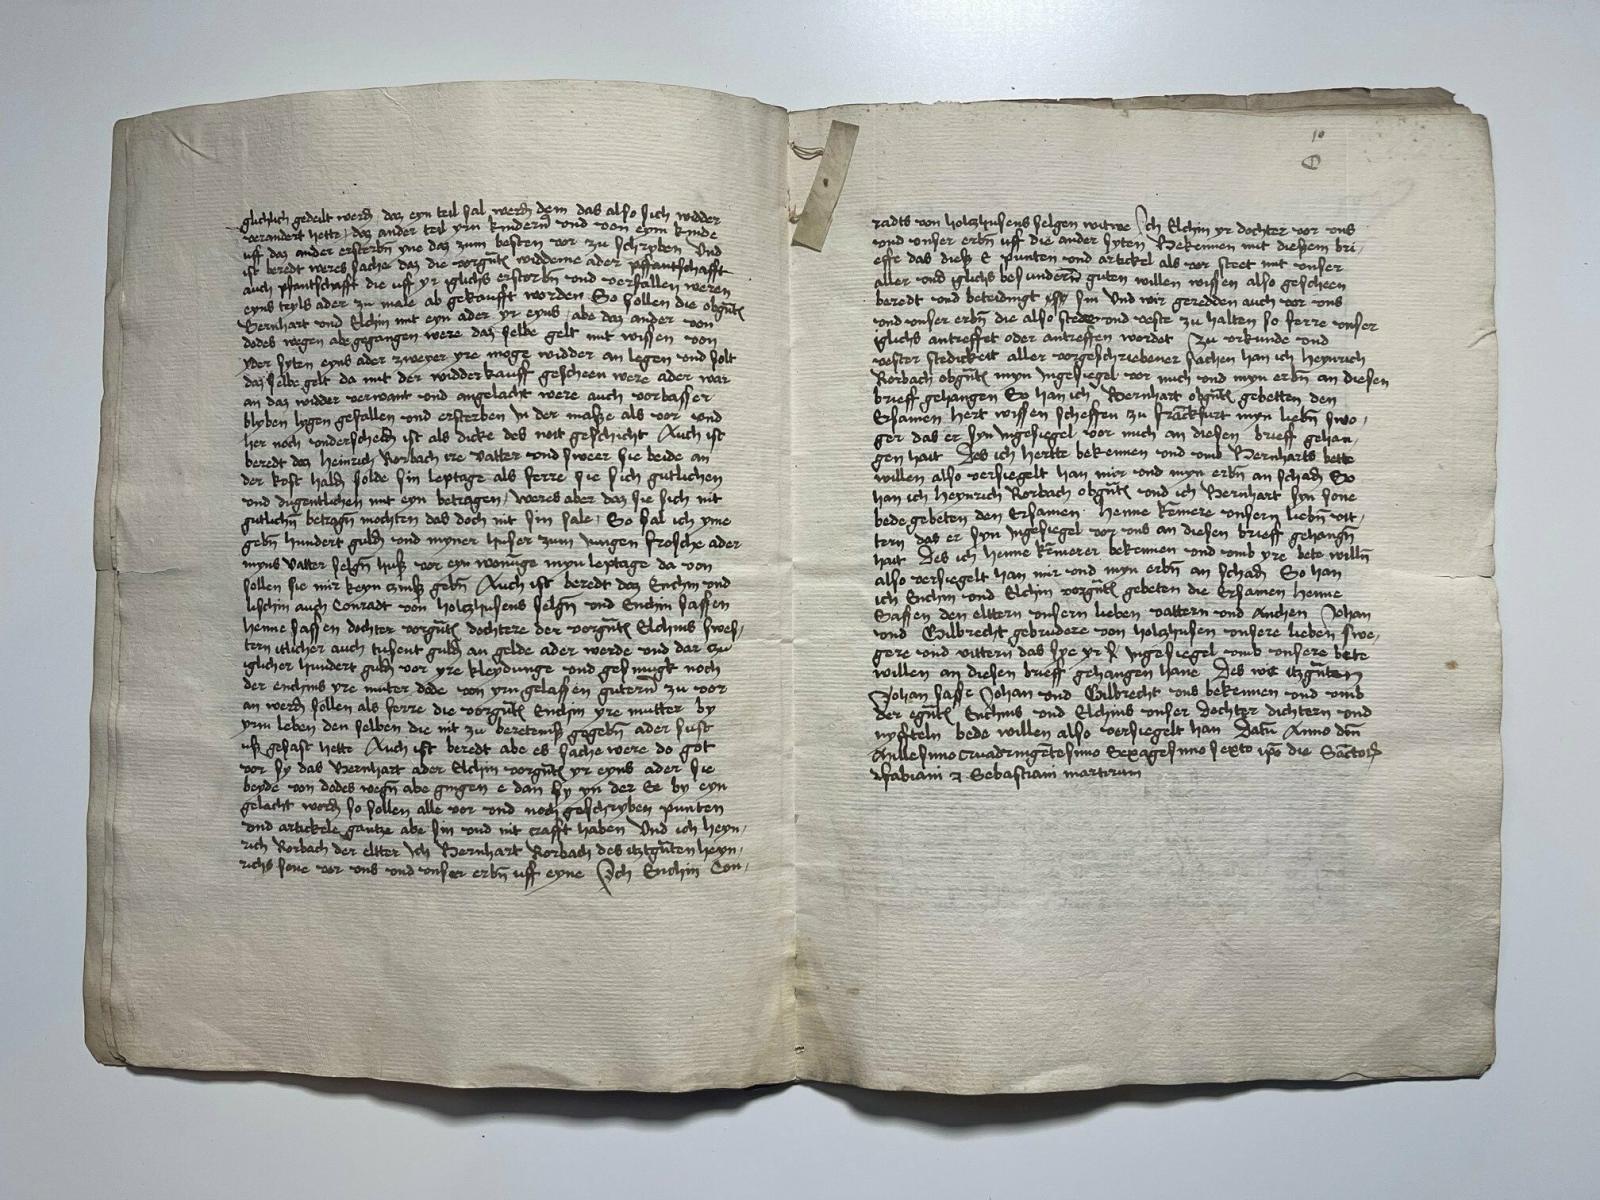 glichlich gedeilt werdñ daz eyn teil sal werdñ dem das also sich widder
verandert hette / daz ander teil yrn kindernn vnd von eym kinde
uff daz ander ersterbñ yne daz zum besten vor zu schryben Vnd
ist beredt weres sache daz die vorgñten widdeme ader pffantschafft
auch pfantschafft die uff yr glichs erstorbñ vnd verfallen weren
eyns teyls ader zu male ab gekaufft worden So sollen die obgñten
Bernhart vnd Elchin mit eyn ader yr eyns / abe daz ander von
dodes wegen abegegangen were daz selbe gelt mit wissen von
yder syten eyns ader zweyer yre moge widder an legen vnd solt
daz selbe gelt da mit der widderkaufft gescheen were ader war
an daz widder verwant vnd angelacht were auch vorbasser
blyben ligen gefallen vnd ersterben in der masze als vor vnd
her noch vnderscheidñ ist als dicke des noit geschicht Auch ist
beredt daz Heinrich Rorbach ire vatter vnd sweer sie beide an
der kost haldñ solde sin leptage als ferre sie sich gutlichen
vnd dugentlichen mit eyn betragen / weres aber daz sie sich nit
gutlichñ betragñ mochten das doch nit sin sale / So sal ich yme
gebñ hundert guldñ vnd myner huser zum Jungen frosche ader
myns vatter selgñ husz vor eyn wonuge myn leptage da von
sollen sie mir keyn zinsz gebñ Auch ist beredt daz Enchin vnd
lischin auch Conradt von Holtzhusens selgñ vnd Enchin sassen
henne sassen dochter vorgñten dochtere der vorgñten Elchins swes-
tern itlicher auch tusent guldñ an gelde ader werde vnd dar zu
iglicher hundert guldñ vor yre kleydunge vnd gesmugk noch
der enchins yre muter dode von yrn gelassen guternn zu vor
an werdñ sollen als ferre die vorgñten Enchin yre mutter by
yrm leben den selben die nit zu beretenisz gegebñ ader sust
usz gesast hette Auch ist beredt abe es sache were do got
vor sy das Bernhart ader Elchin vorgñten yr eyns ader sie
beyde von dodes wegñ abe gingen e dan sy yn der Ee by eyn
gelacht wordñ so sollen alle vor vnd noch geschryben punten
vnd artickele gantze abe sin vnd nit crafft haben Vnd ich heyn-
rich Rorbach der eltter Ich Bernhart Rorbach des itztgñten heyn-
richs sone vor vns vnd vnser erbñ uff eyne Ich Enchin Con-
10
radts von holtzhusens selgen witwe Ich Elchin yr dochter vor vns
vnd vnser erbñ uff die ander syten Bekennen mit dieszem bri-
effe das diesz e punten vnd artickel als vor steet mit vnser
aller vnd glichs besundernn guten willen wissen also gescheen
beredt vnd beteidingt sin Vnd wir geredden auch vor vns
vnd vnser erbñ die also stede vnd veste zu halten so ferre vnser
iglichs antreffet oder antreffen wordet Zu orkunde vnd
vester stedickeit aller vorgeschriebener sachen han ich heynrich
Rorbach obgñten myn Ingesiegel vor mich vnd myn erbñ an diesen
brieff gehangen So han ich Bernhart obgñten gebetten den
Ersamen hert wissen scheffen zu franckfurt myn liebñ swo-
ger das er syn Ingesiegel vor mich an diesen brieff gehan-
gen hait Des ich hertte bekennen vnd vmb Bernharts bette
willen also versiegelt han mir vnd myn erbñ an schadñ So
han ich Heynrich Rorbach obgñten vnd ich Bernhart syn sone
bede gebeten den Ersamen henne kemere vnsern liebñ vit-
tern das er syn Ingesiegel vor vns an diesen brieff gehangñ
hait Des ich henne kemerer bekennen vnd vmb yre bete willñ
also versiegelt han mir vnd myn erbñ an schadñ So han
ich Enchin vnd Elchin vorgñten gebeten die Ersamen henne
Sassen den elttern vnsern lieben vattern vnd Anchen Johan
vnd Gilbrecht gebrudere von holtzhusen vnsere lieben swe-
gere vnd vittern das sye yr Ingesiegel vmb vnsere bete
willen an diesen brieff gehangen hane Des wir itzgñten
Johan sasse Johan vnd Gilbrecht vns bekennen vnd vmb
der egñten Enchins vnd Elchins vnser dochter dichtern vnd
nyffteln bede willen also versiegelt han Datū Anno dñi
Millesimo Cuadringētesimo Sexagesimo sexto ipō die Sāctorum
Fabiani & Sebastiani martirum